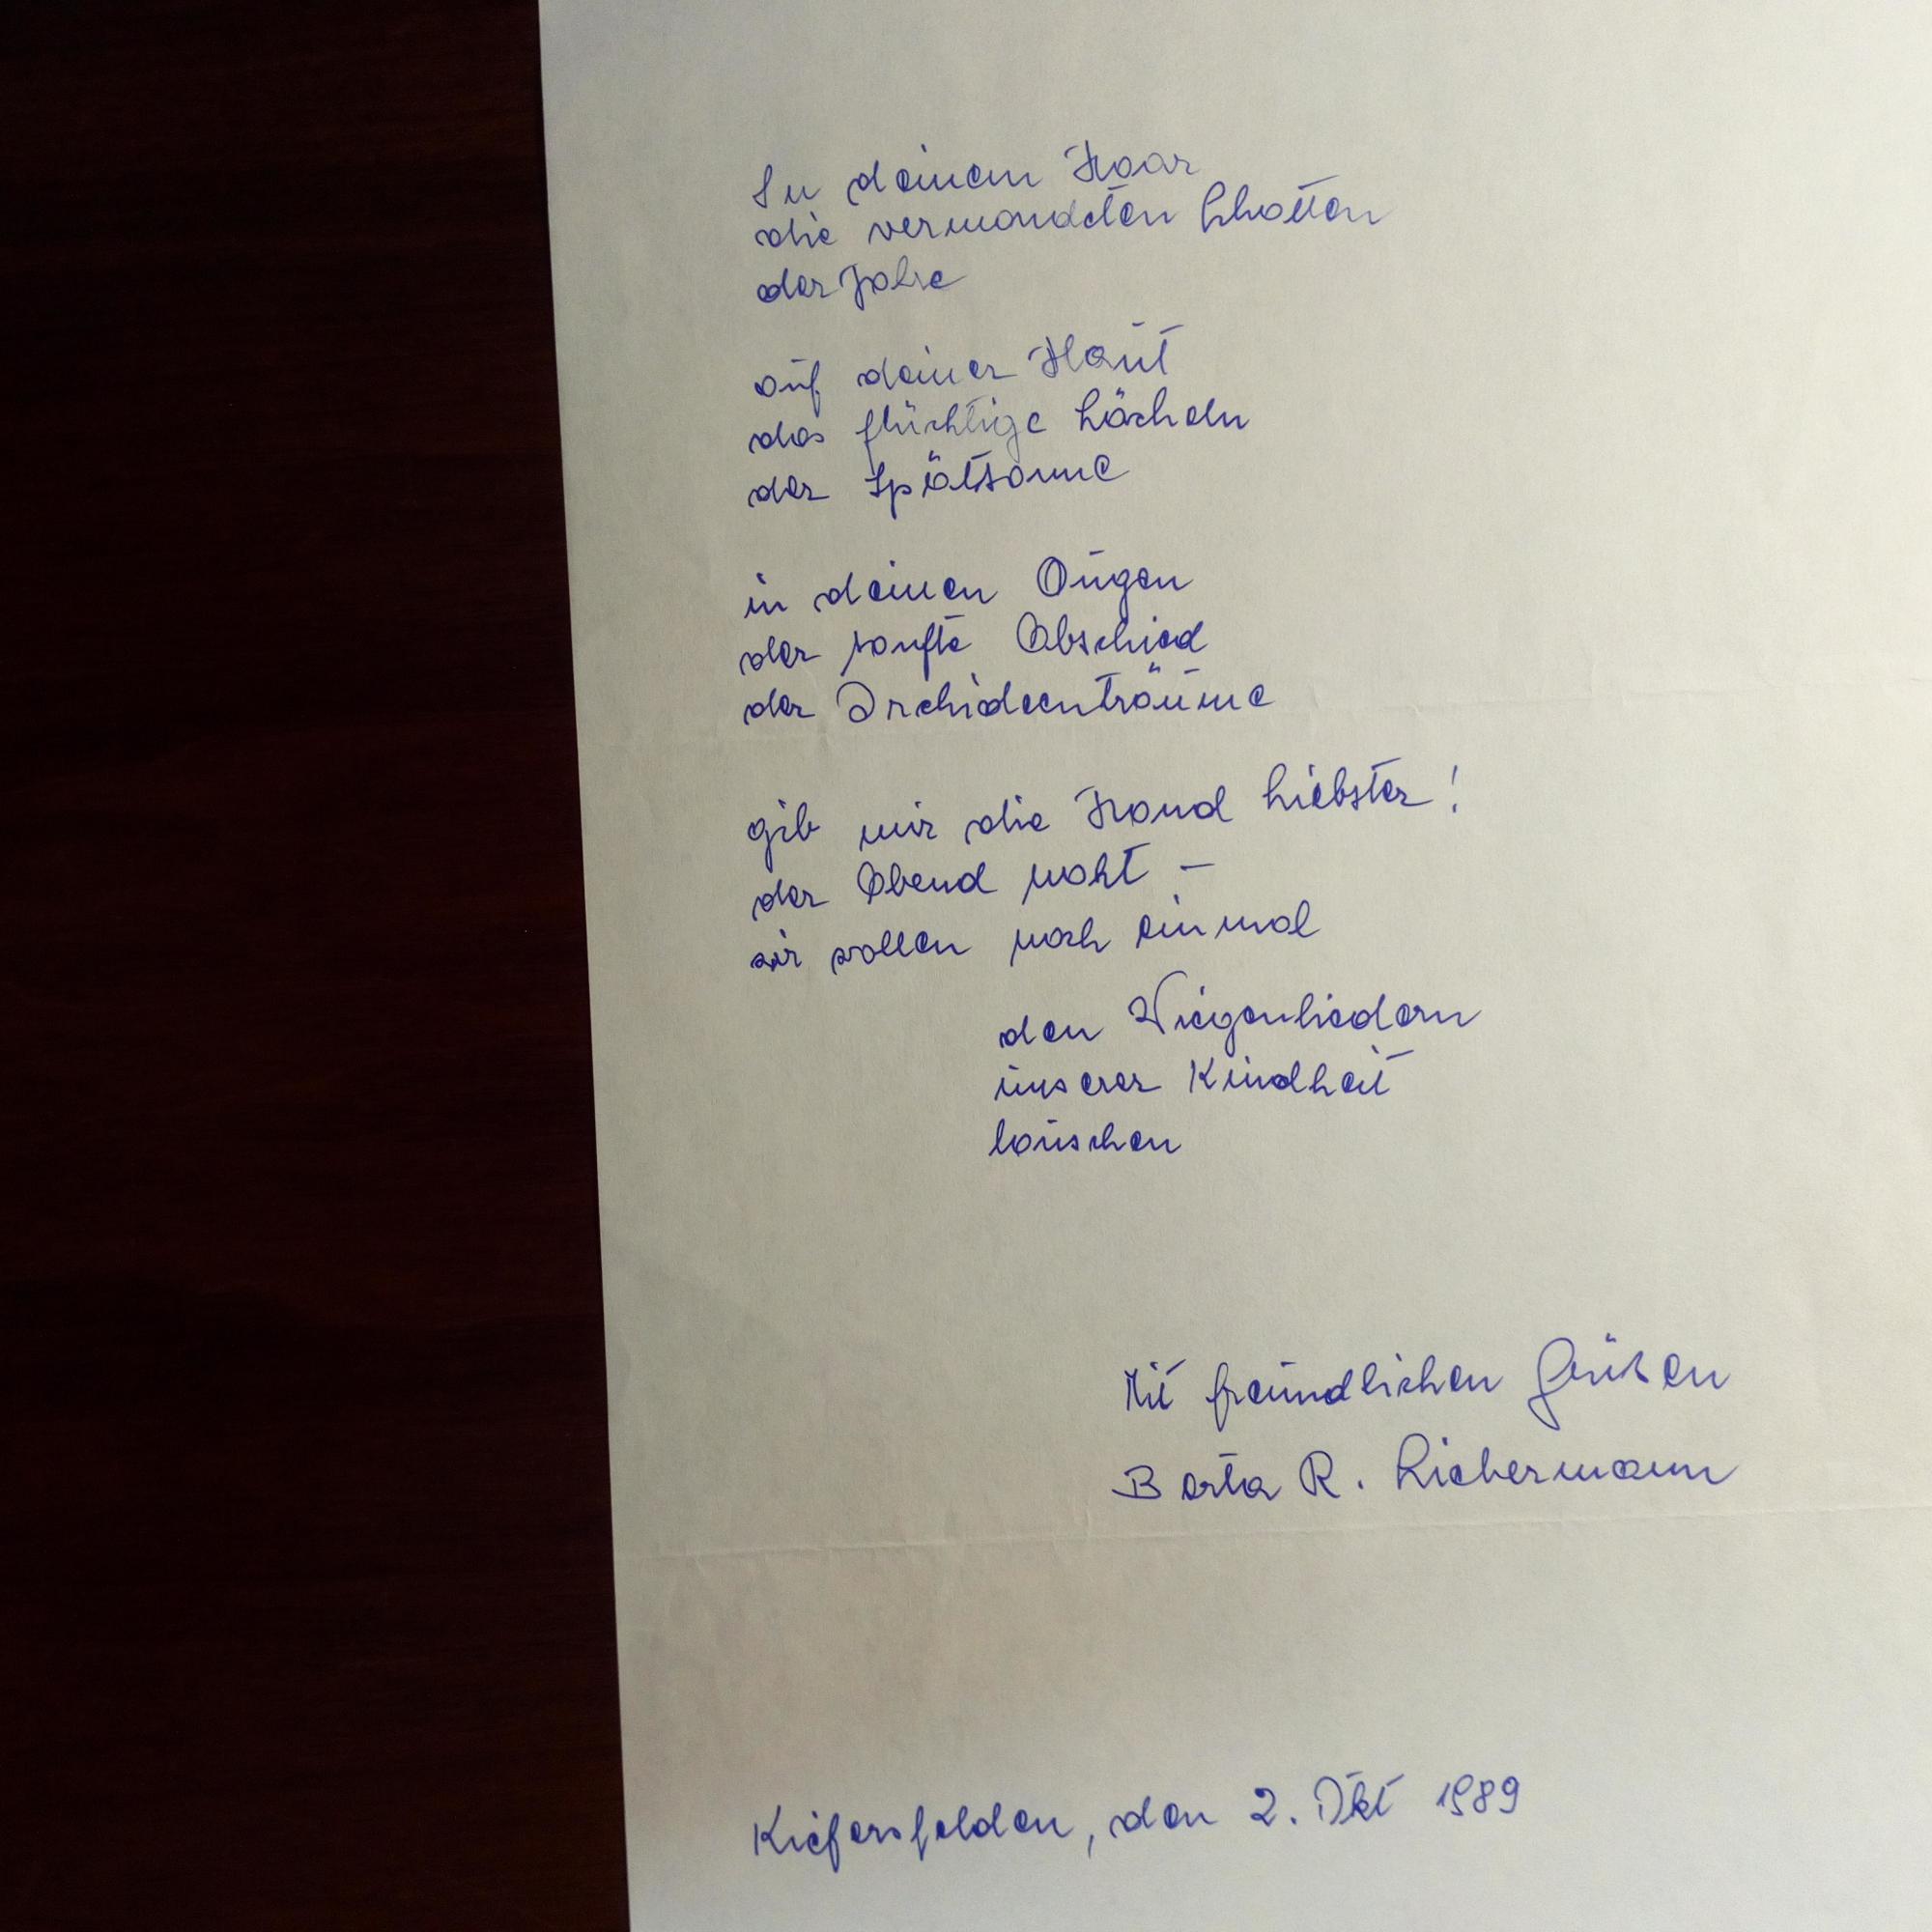 In deinem Haar
die vermondeten Schatten
der Jahre
auf deiner Haut
das flüchtige Lächeln
der Spätsonne
in deinen Augen
der sanfte Abschied
der Orchideenträume
gib mir die Hand Liebster!
der Abend naht –
wir wollen noch einmal
den Wiegenliedern
unserer Kindheit
lauschen
Mit freundlichen Grüßen
Berta R. Liebermann
Kiefersfelden, den 2. Okt 1989